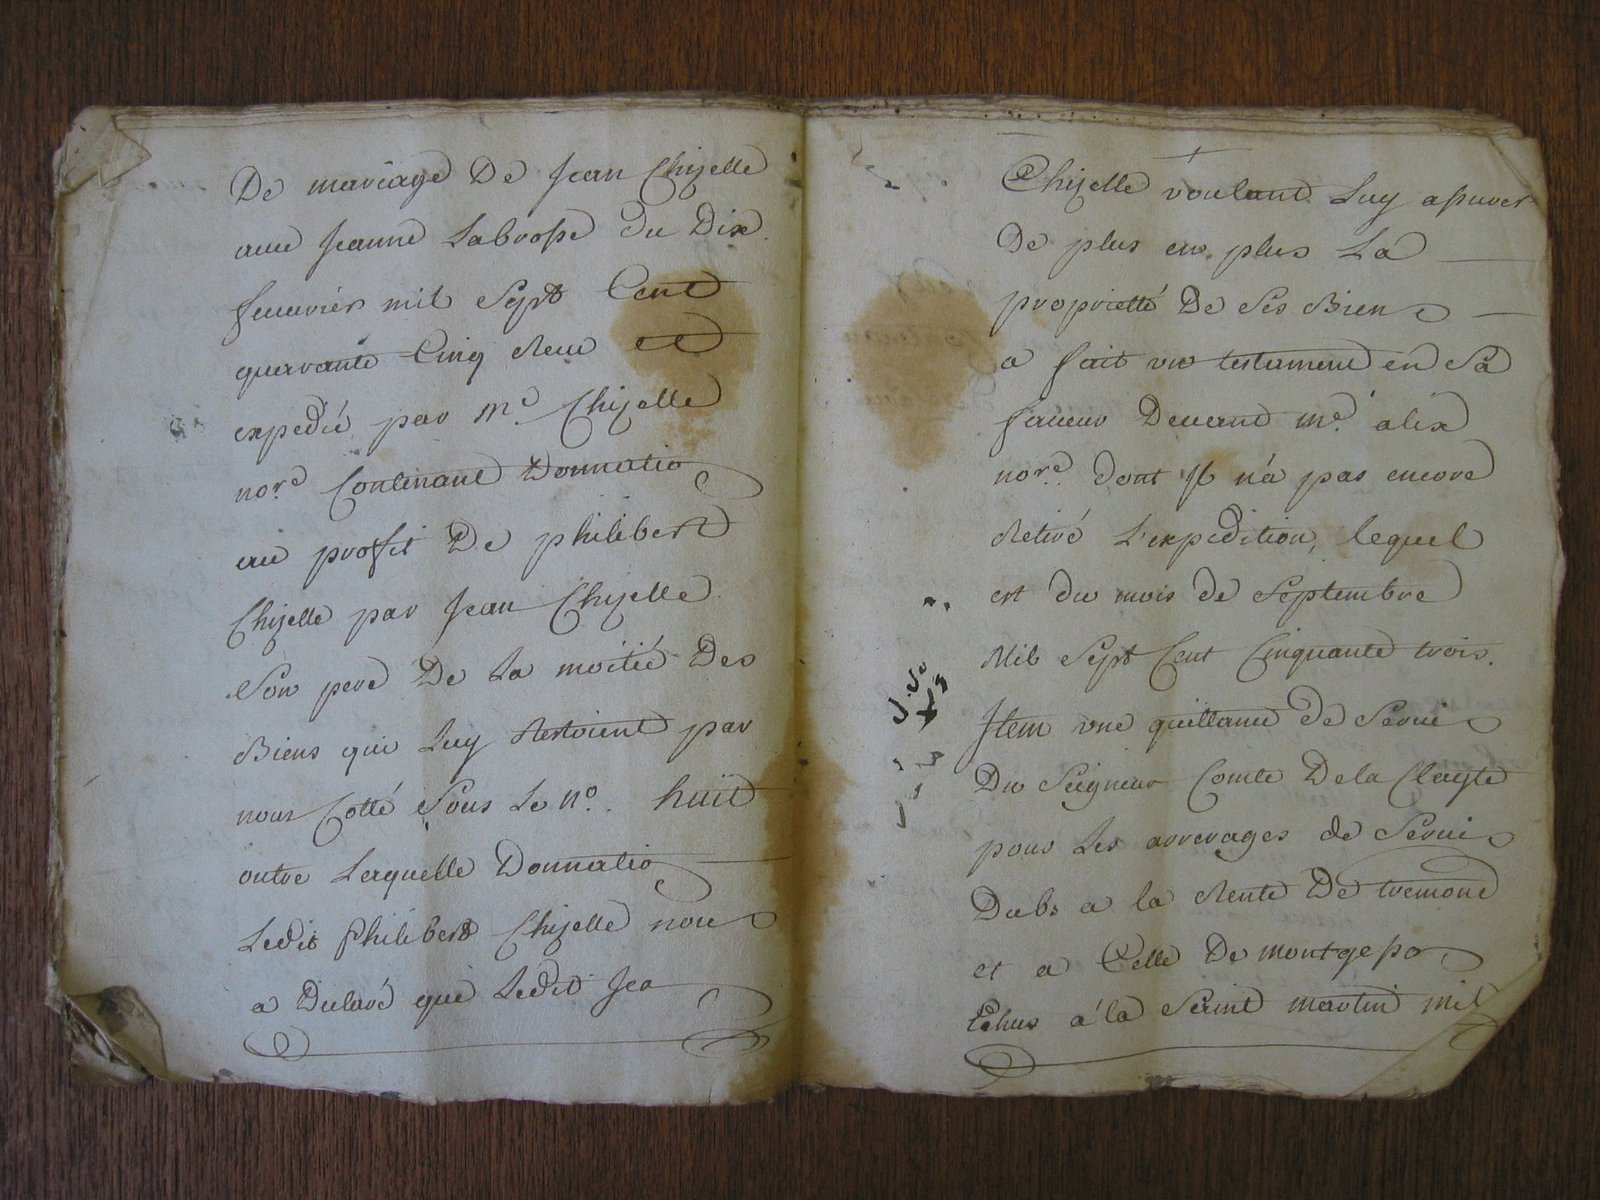 De mariage De Jean Chizelle
avec Jeanne Labrosse du Dix
feuvrier mil Sept Cent
quarante Cinq Receu et
expedié par Me. Chizelle
nore. Contenant Donnation
au profit De philibert
Chizelle par Jean Chizelle
Son pere De La moitié Des
Biens qui Luy Restoient par
nous Cotté Sous Le No. huit
outre Laquelle Donnation
Ledit Philibert Chizelle nous
a Declaré que Ledit Jean
Chizelle voulant Luy assurer
De plus en plus La
proprietté De Ses Biens
a fait un testament en Sa
faveur Devant Me. alix
nore. dont Il n'a pas encore
Retiré L'expedition, lequel
est du mois de Septembre
Mil Sept Cent Cinquante trois.
Item une quittance de Servis
Du Seigneur Comte De la Clayte
pour Les arrerages de Servis
Dubs a la Rente De tremont
et a Celle De montgesson
Echus a la Saint martin mil